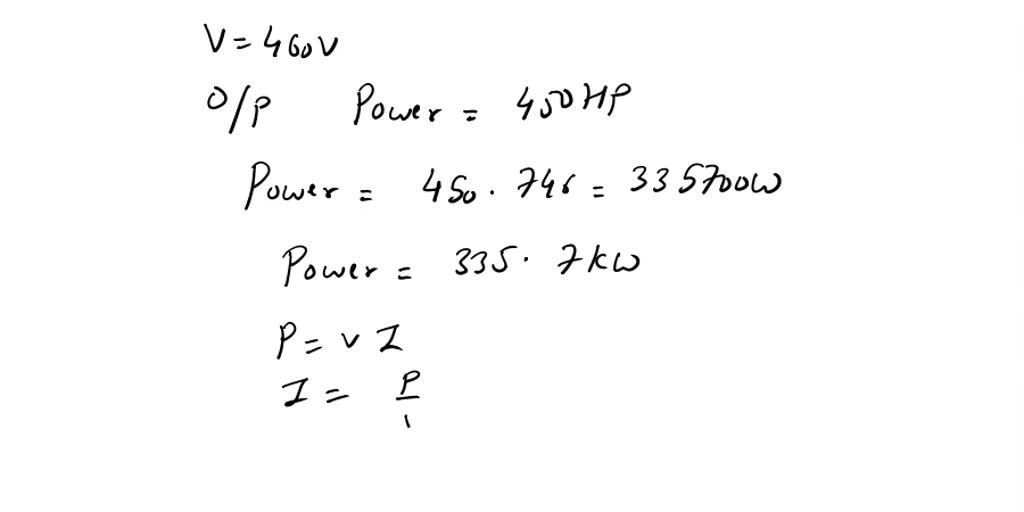 V = 460V
O/P Power = 450HP
Power = 450 . 746 = 335700W
Power = 335.7kW
P = V I
I = P/